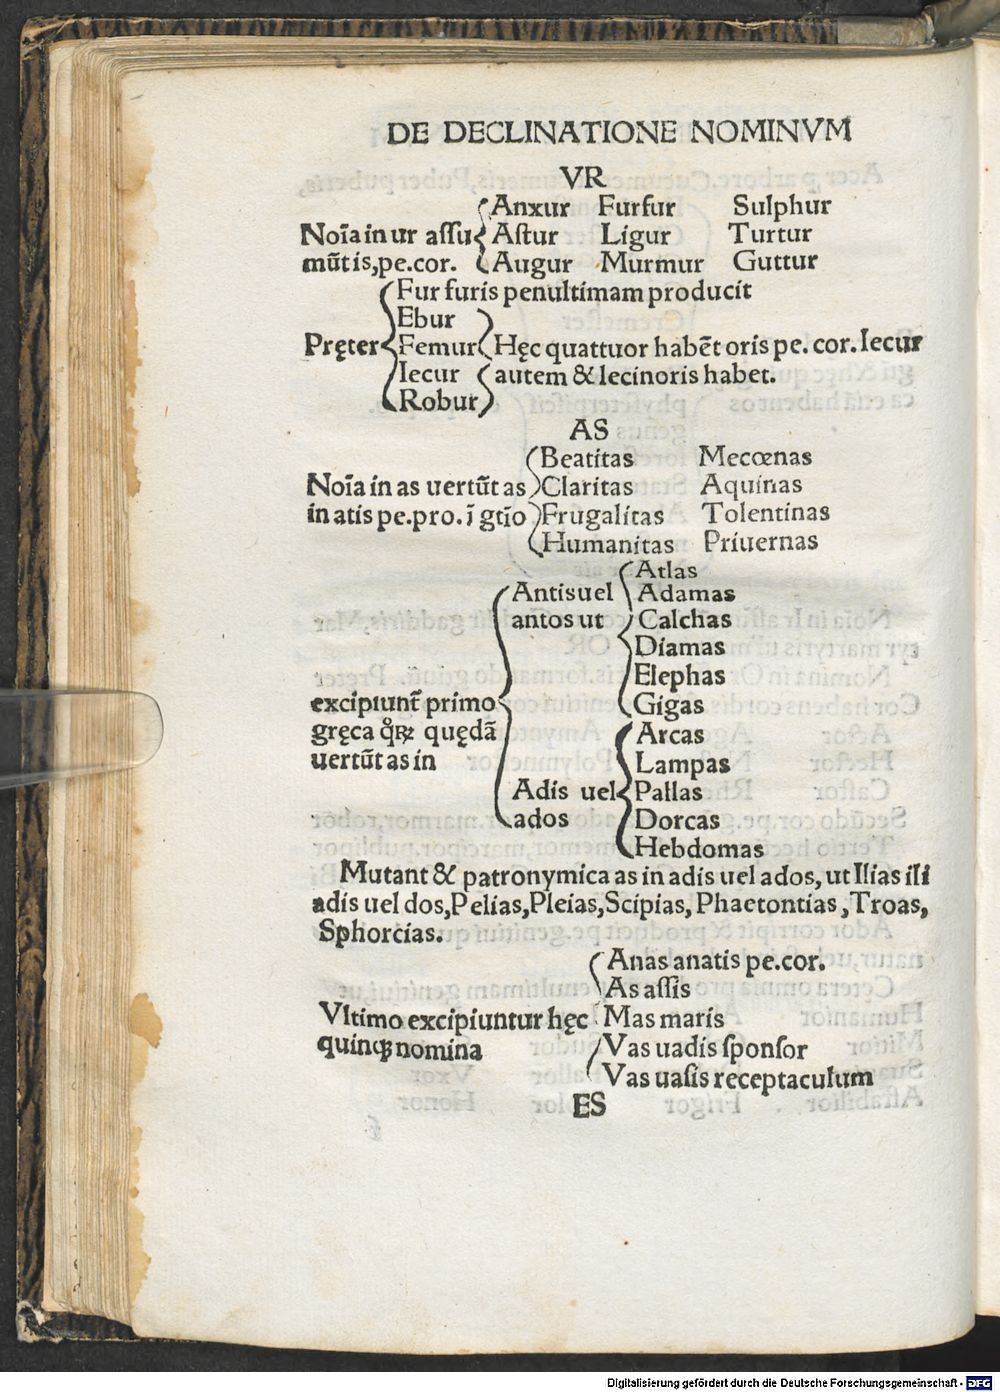 DE DECLINATIONE NOMINVM
VR
Anxur Furfur Sulphur
Noīa in ur aſſu Aſtur Ligur Turtur
mūt is, pe. cor. Augur Murmur Guttur
Fur furis penultimam producit
Ebur
Pręter Femur Hęc quattuor habēt oris pe. cor. Iecur
Iecur autem & Iecinoris habet.
Robur
AS
Beatitas Mecœnas
Noīa in as uertūt as Claritas Aquinas
in atis pe. pro. ī gtīo Frugalitas Tolentinas
Humanitas Priuernas
Atlas
Antis uel Adamas
antos ut Calchas
Diamas
Elephas
excipiunt̃ primo Gigas
gręca quędā Arcas
uertūt as in Lampas
Adis uel Pallas
ados Dorcas
Hebdomas
Mutant & patronymica as in adis uel ados, ut Ilias ili
adis uel dos, Pelias, Pleias, Scipias, Phaetontias, Troas,
Sphorcias.
Anas anatis pe. cor.
As aſſis
Vltimo excipiuntur hęc Mas maris
quinqꝫ nomina Vas uadis ſponſor
Vas uaſis receptaculum
ES
Digitalisierung gefördert durch die Deutsche Forschungsgemeinschaft - DFG